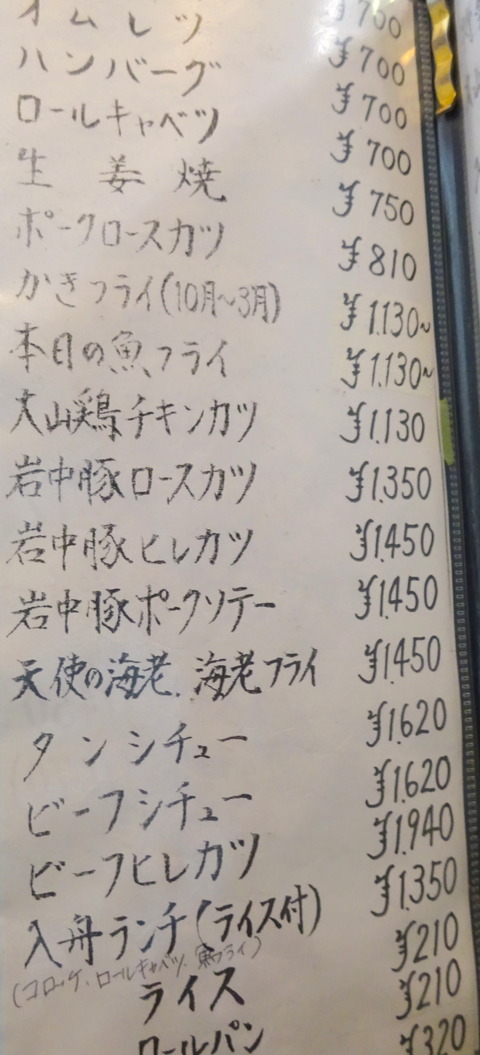 ¥700
オムレツ ¥700
ハンバーグ ¥700
ロールキャベツ ¥700
生姜焼 ¥750
ポークロースカツ ¥810
かきフライ(10月~3月) ¥1.130~
本日の魚フライ ¥1.130~
大山鶏チキンカツ ¥1.130
岩中豚ロースカツ ¥1.350
岩中豚ヒレカツ ¥1.450
岩中豚ポークソテー ¥1.450
天使の海老、海老フライ ¥1.450
タンシチュー ¥1.620
ビーフシチュー ¥1.620
ビーフヒレカツ ¥1.940
入舟ランチ(ライス付) ¥1.350
(コロッケ、ロールキャベツ、魚フライ)
ライス ¥210
ロールパン ¥210
¥320